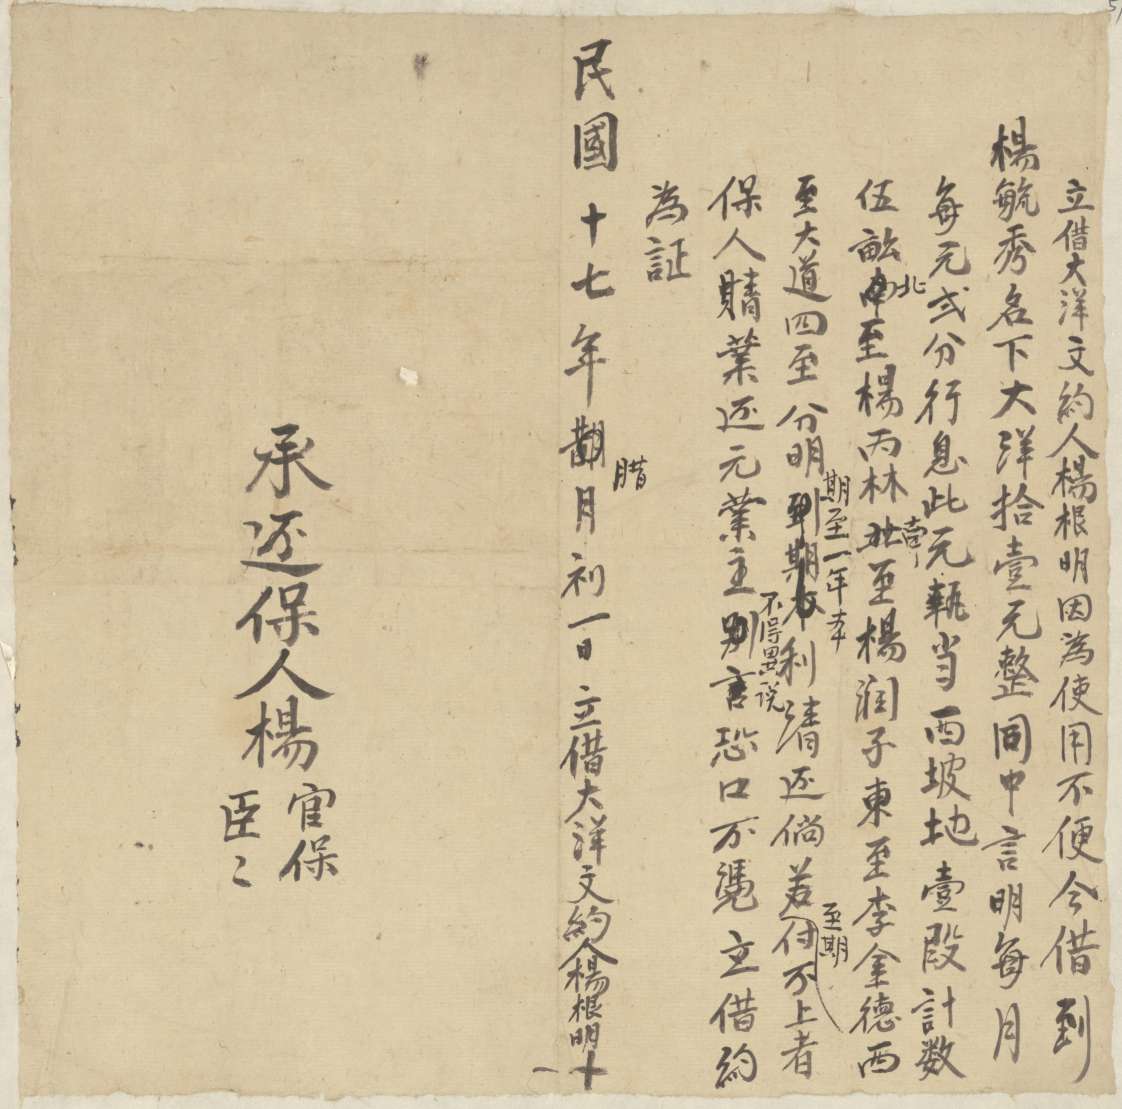 立借大洋文約人楊根明因為使用不便今借到
楊毓秀名下大洋拾壹元整同中言明每月
每元弍分行息此元執当西坡地壹段計数
伍畝南至楊丙林北至楊润子東至李金德西
北
壹
至大道四至分明到期本利清还倘若付不上者
期至一年本
至期
保人賭業还元業主别言恐口不憑立借約
不得異说
為証
民國十七年觀月初一日立借大洋文約人楊根明十
腊
承还保人楊
官保
臣〻